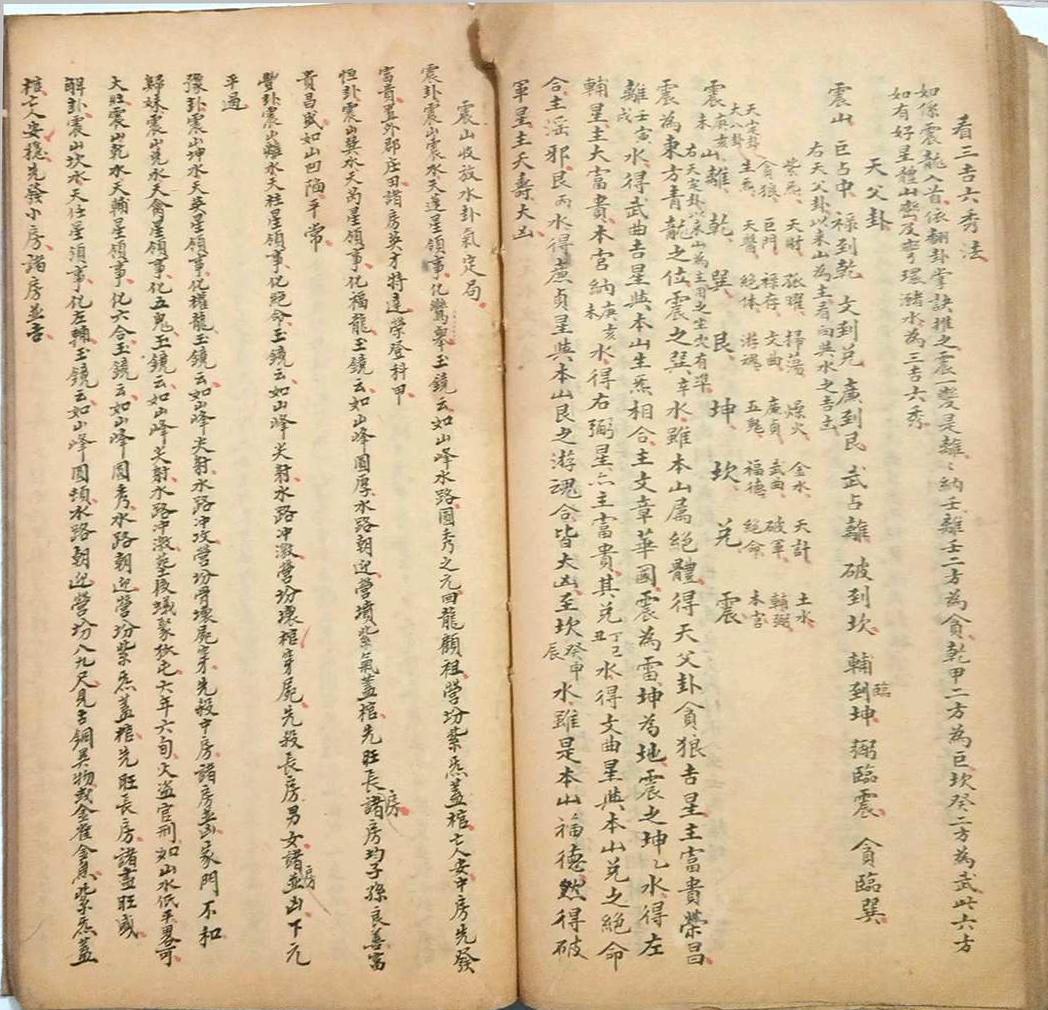 看三吉六秀法
如係震龍入首依翻卦掌訣推之震一變是離離納壬離壬二方為貪乾甲二方為巨坎癸二方為武此六方
如有好星體山巒及彎環潴水為三吉六秀
天父卦
震山 巨占中 祿到乾 文到兌 廉到艮 武占離 破到坎 輔到坤 弼臨震 貪臨巽
右天父卦以來山為主看向與水之吉凶
紫炁 天財 孤曜 掃蕩 燥火 金水 天計 土水
貪狼 巨門 祿存 文曲 廉貞 武曲 破軍 輔弼
天山定卦 生炁 天醫 絕体 游魂 五鬼 福德 絕命 本宮
震庚亥未山離 乾 巽 艮 坤 坎 兌 震
右天定卦以來山為主用之生尅有準
震為東方青龍之位震之巽辛水雖本山属絕體得天父卦貪狼吉星主富貴榮昌
離壬寅戌水得武曲吉星與本山生炁相合主文章華國震為雷坤為地震之坤乙水得左
輔星主大富貴本宮納庚亥未水得右弼星亦主富貴其兌丁巳丑水得文曲星與本山兌之絕命
合主淫邪艮丙水得亷貞星與本山艮之游魂合皆大凶至坎癸申辰水雖是本山福德然得破
軍星主夭壽大凶
震山收放水卦氣定局
震卦震山震水天蓬星領事化鸞舉玉鏡云如山峰水路圓秀之元回龍顧祖營坟紫炁蓋棺亡人安中房先發
富貴置外郡庄田諸房英才特達榮登科甲
恒卦震山巽水天芮星領事化福龍玉鏡云如山峰圓厚水路朝迎營墳紫氣蓋棺先旺長房諸房均子孫良善富
貴昌盛如山凹陷平常
豐卦震山離水天柱星領事化絕命玉鏡云如山峰尖射水路冲激營坟壞棺穿屍先殺長房男女諸房並凶下元
平過
豫卦震山坤水天英星領事化權龍玉鏡云如山峰尖射水路冲攻營坟骨壞屍穿先殺中房諸房並凶家門不和
歸妹震山兌水天禽星領事化五鬼玉鏡云如山峰尖射水路冲激塟後蟻聚於屯六年六旬火盗官刑如山水低平畧可
大壯震山乾水天輔星領事化六合玉鏡云如山峰圓秀水路朝迎營坟紫炁蓋棺先旺長房諸盡旺盛
解卦震山坎水天任星領事化左輔玉鏡云如山峰圓頓水路朝迎營坟八九尺見古銅異物或金雀金魚紫炁蓋
棺亡人安穩先發小房諸房並吉